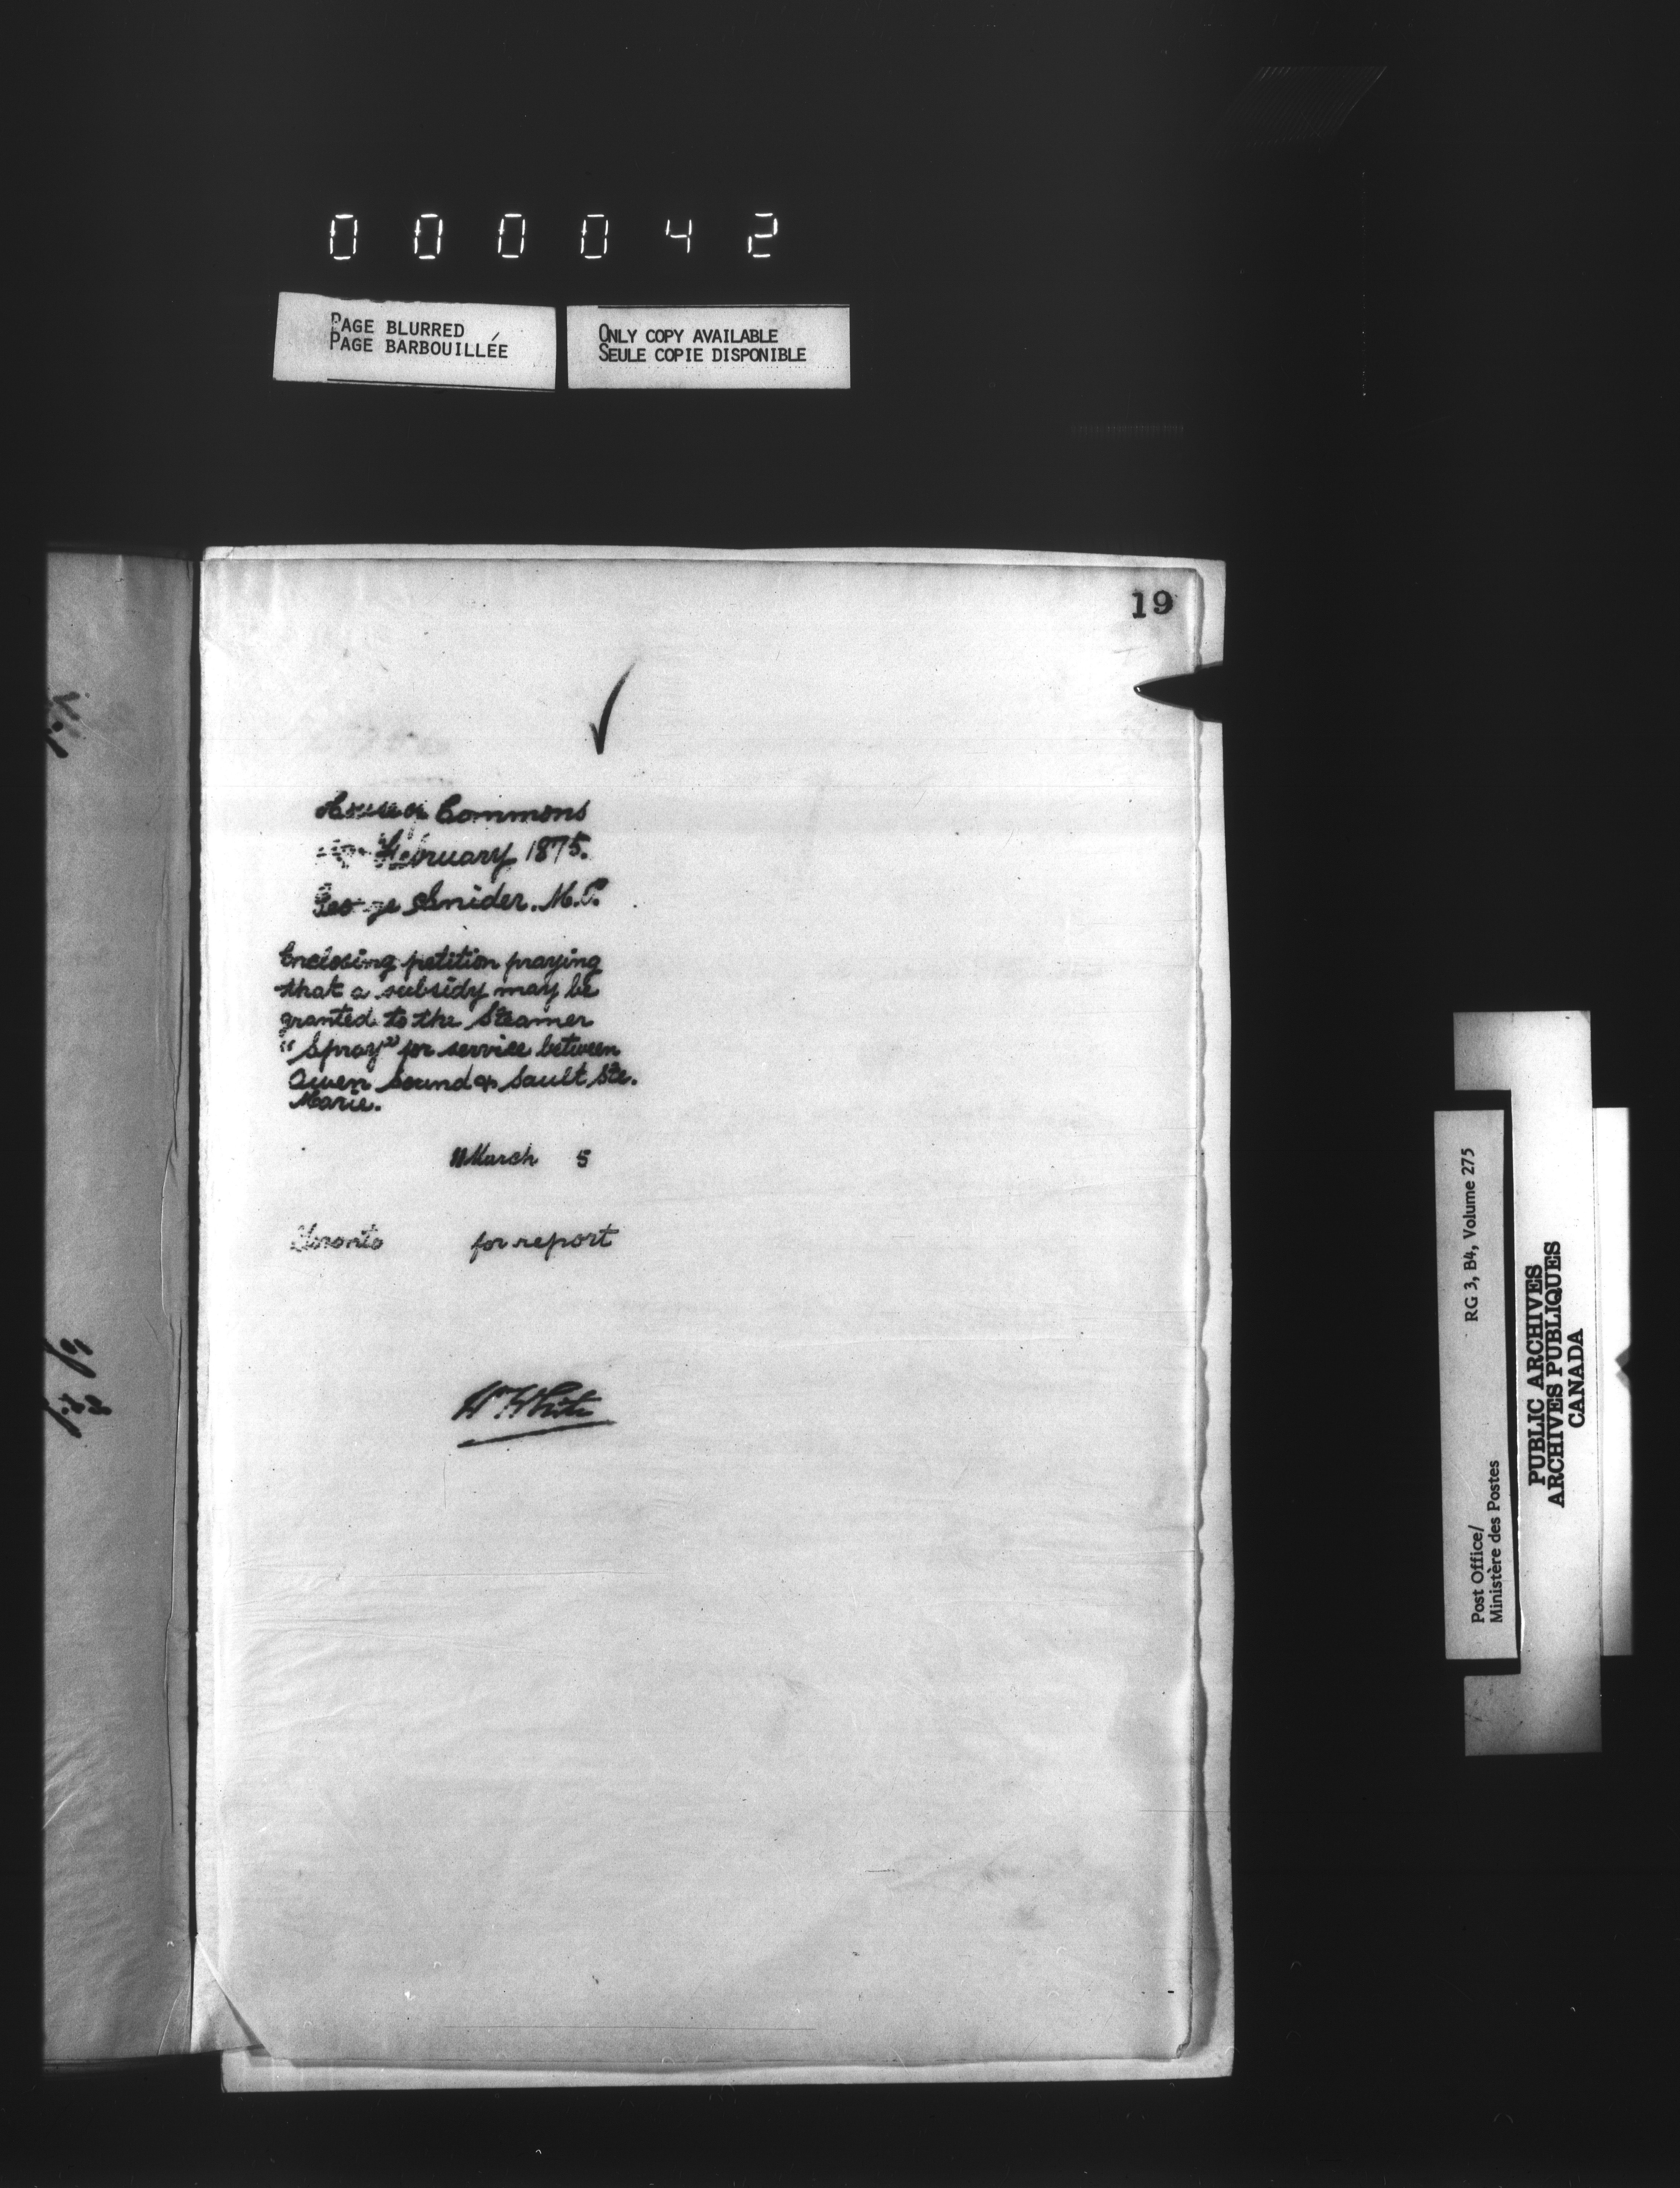 000042
PAGE BLURRED
PAGE BARBOUILLÉE
ONLY COPY AVAILABLE
SEULE COPIE DISPONIBLE
19
House of Commons
February 1875.
George Snider. M.P.
Enclosing petition praying
that a subsidy may be
granted to the Steamer
"Spray" for service between
Owen Sound & Sault Ste.
Marie.
11 March 5
Toronto for report
W White
Post Office/ RG 3, B4, Volume 275
Ministère des Postes
PUBLIC ARCHIVES
ARCHIVES PUBLIQUES
CANADA